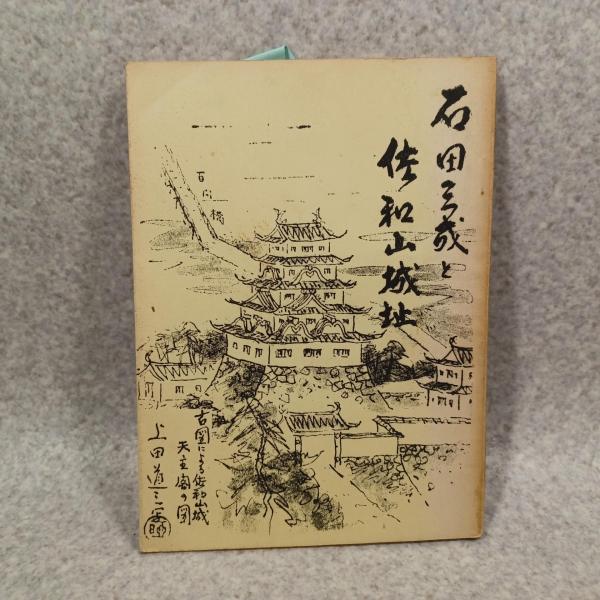 石田三成と
佐和山城址
百間橋
古図による佐和山城
天主閣の図
上田道三画